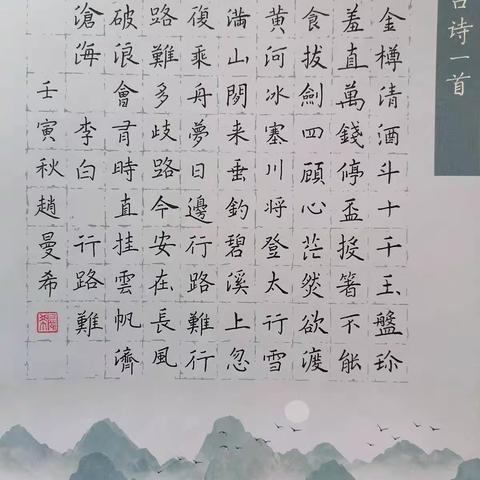 古诗一首
金樽清酒斗十千玉盤珎
羞直萬錢停盃投箸不能
食拔劍四顧心茫然欲渡
黄河冰塞川将登太行雪
滿山閒来垂釣碧溪上忽
復乘舟夢日邊行路難行
路難多歧路今安在長風
破浪會有時直挂雲帆濟
滄海 李白 行路難
壬寅秋趙曼希